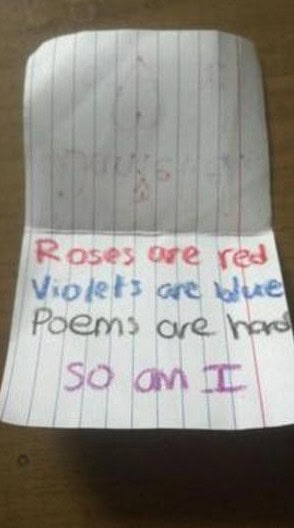 Roses are red
Violets are blue
Poems are hard
SO am I